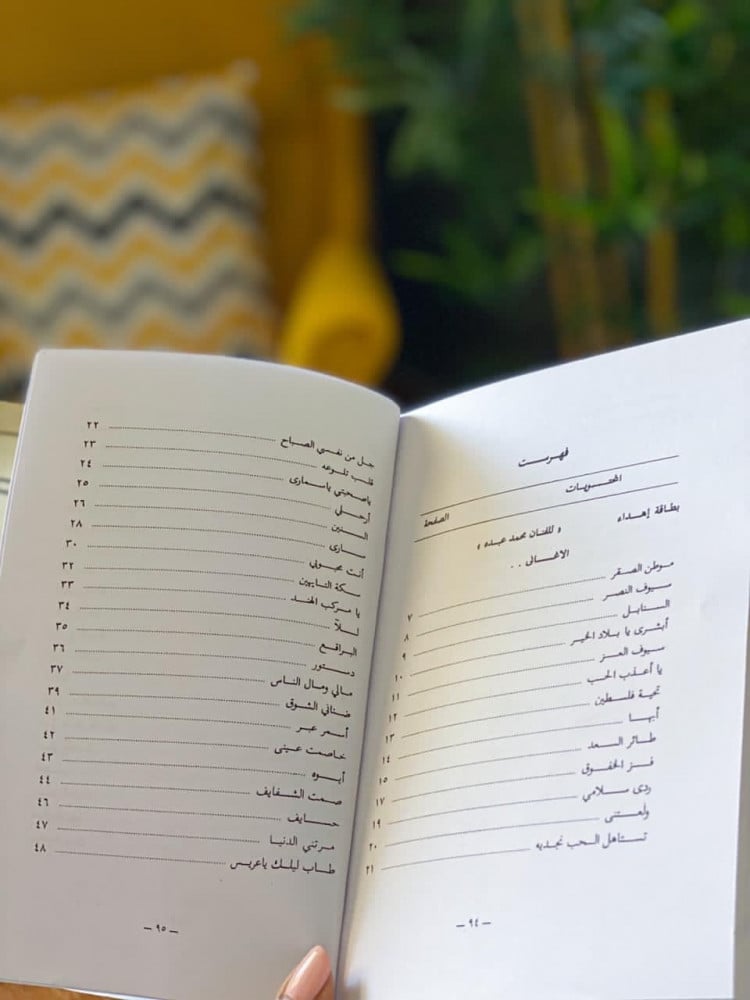 فهرست
المحتويات
الصفحة
بطاقة إهداء
« للفنان محمد عبده »
الاغـانى . .
موطن الصقر ٧
سيوف النصر ٨
السنابل ٩
أبشرى يا بلاد الخير ١٠
سيوف العز ١١
يا أعذب الحب ١٢
تحية فلسطين ١٣
أبها ١٤
طائر السعد ١٥
فز الخفوق ١٧
ردى سلامي ١٩
ولعتنى ٢٠
تستاهل الحب نجديه ٢١
– ٩٤ –
جل من نفسي الصباح ٢٢
قلب تلوعه ٢٣
ياصحبتي ياسمارى ٢٤
أرحلي ٢٥
البنين ٢٦
سارى ٢٨
أنت محبوبي ٣٠
سكة التايهين ٣٢
يا مركب الهند ٣٣
ليلة ٣٤
البراقع ٣٥
دستور ٣٦
مالي ومال الناس ٣٧
ضناني الشوق ٣٩
أسمر عبر ٤١
خاصمت عينى ٤٢
أيوه ٤٣
صمت الشفايف ٤٤
حسايف ٤٦
مرتني الدنيا ٤٧
طاب ليلك ياعريس ٤٨
– ٩٥ –